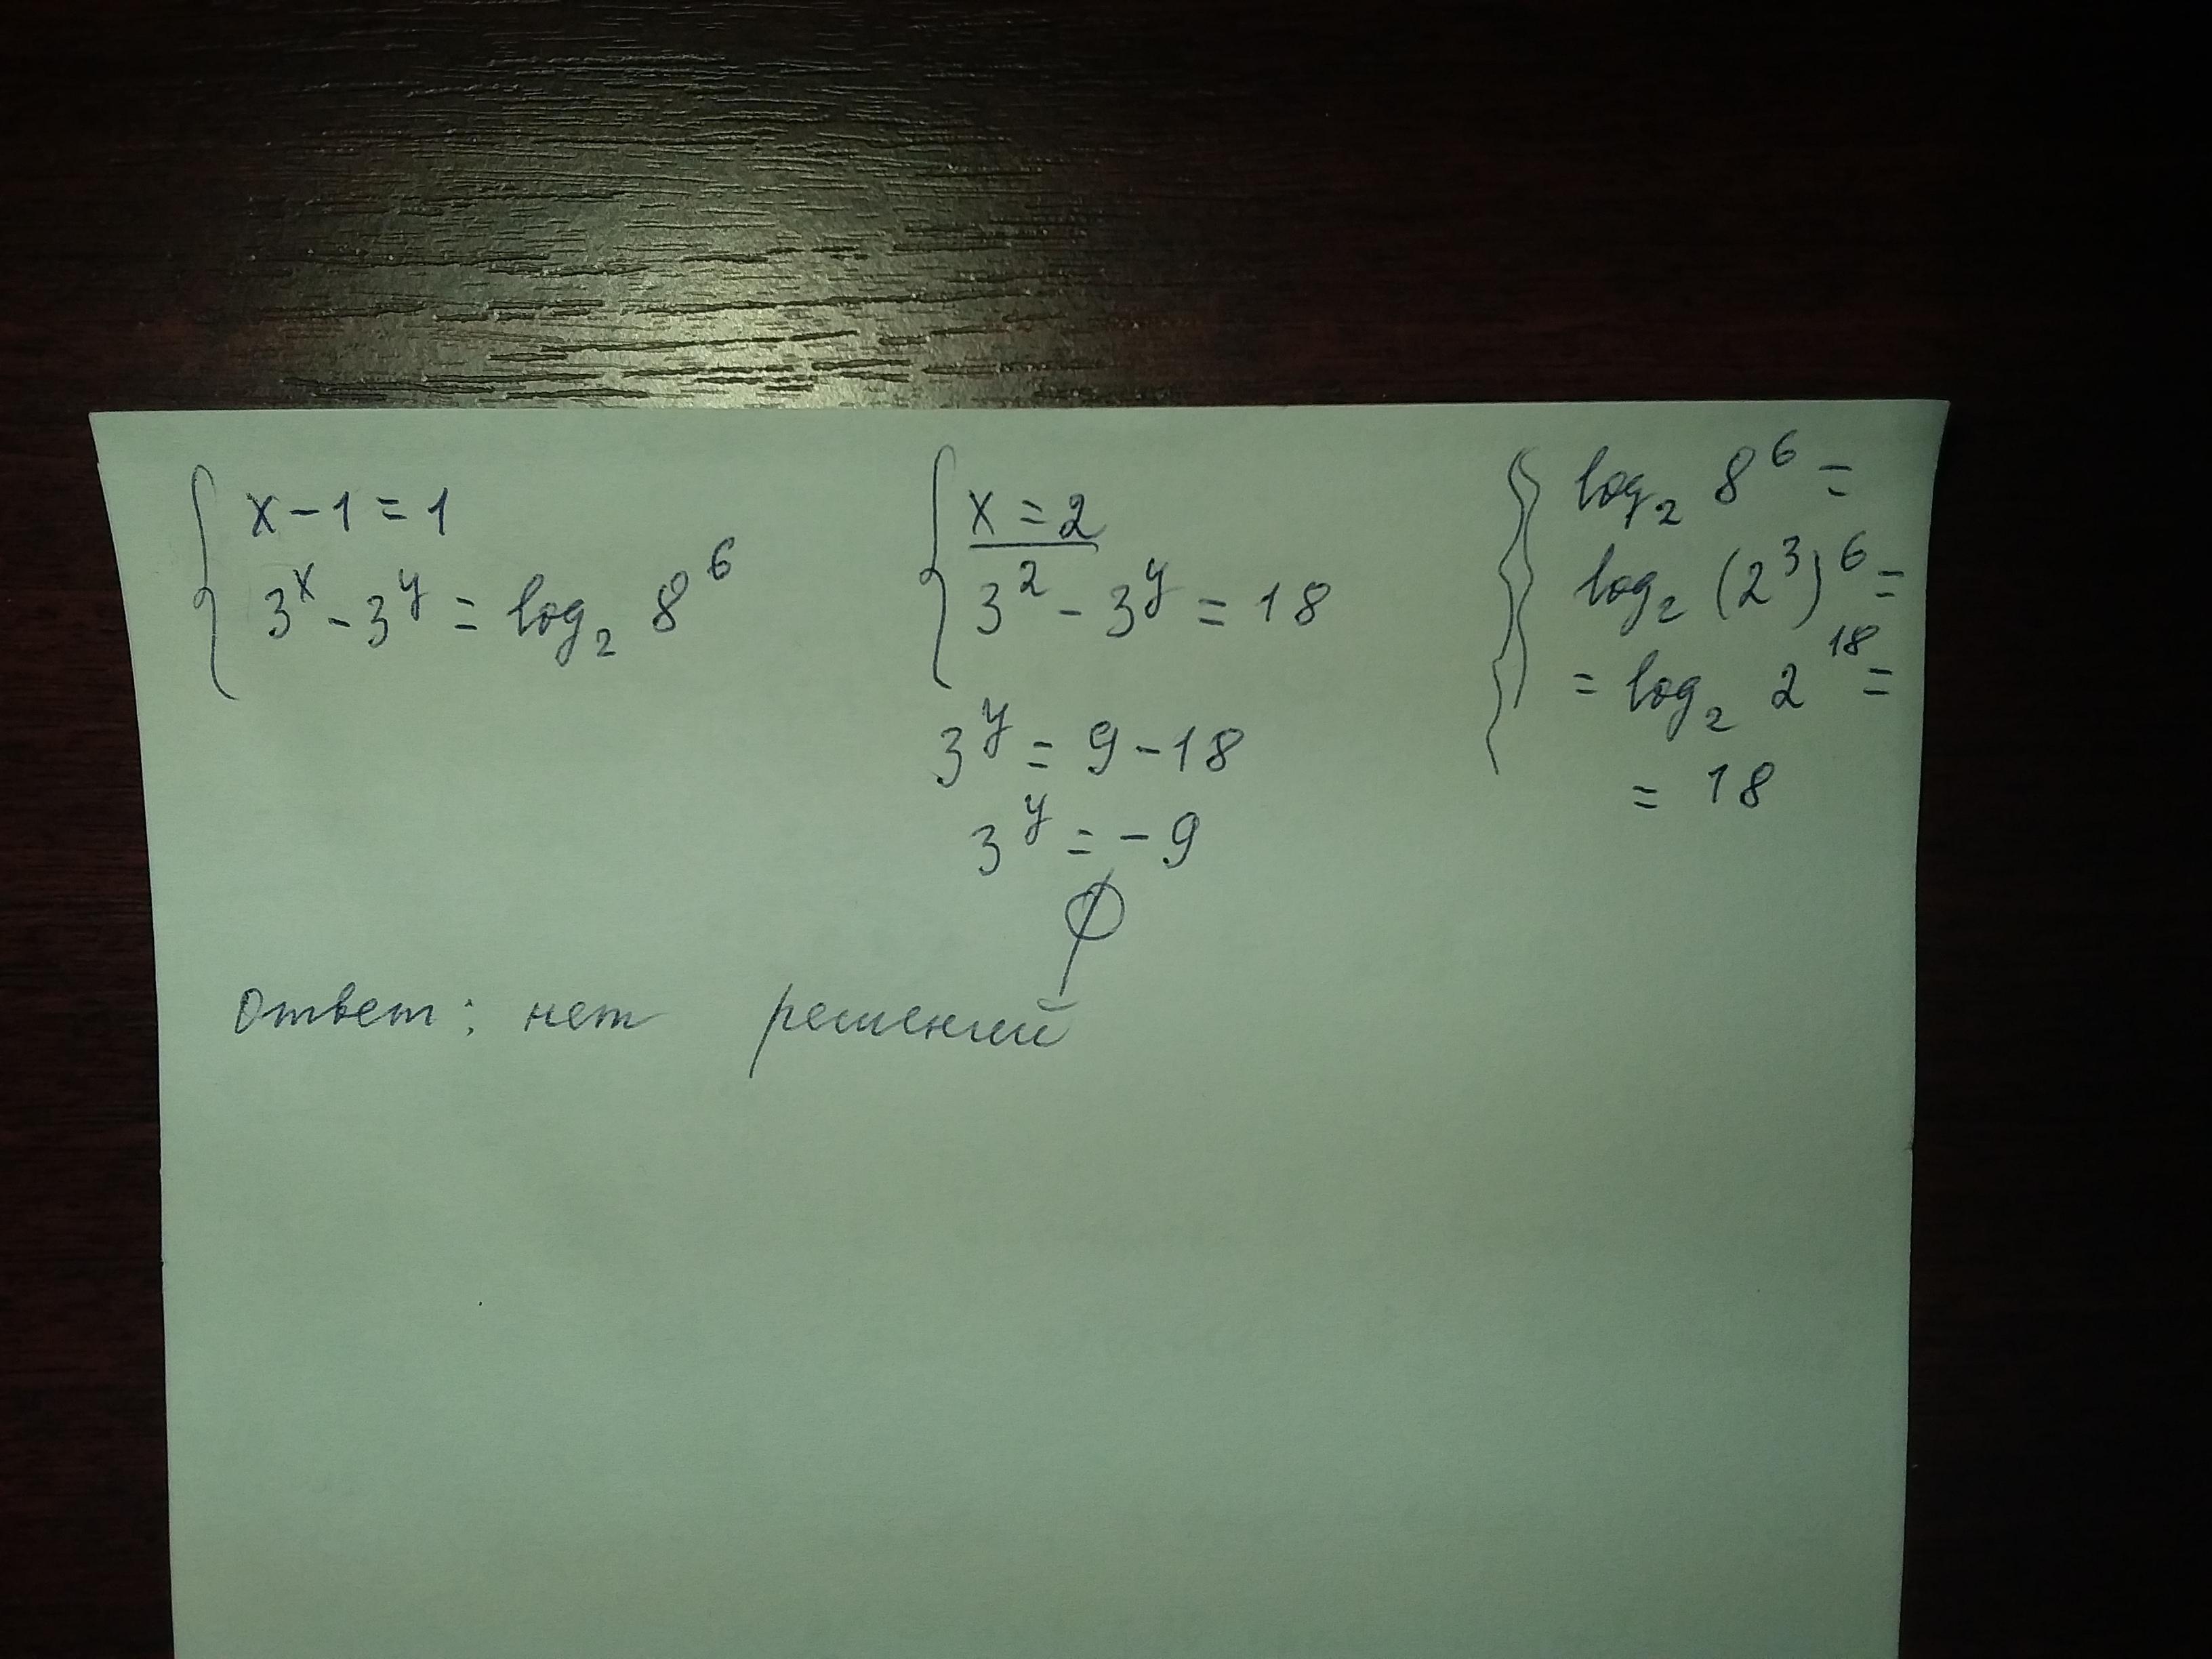 x-1=1
3^x-3^y=log_2 8^6
x=2
3^2-3^y=18
3^y=9-18
3^y=-9
∅
log_2 8^6=
log_2 (2^3)^6=
=log_2 2^18=
=18
Ответ: нет решений